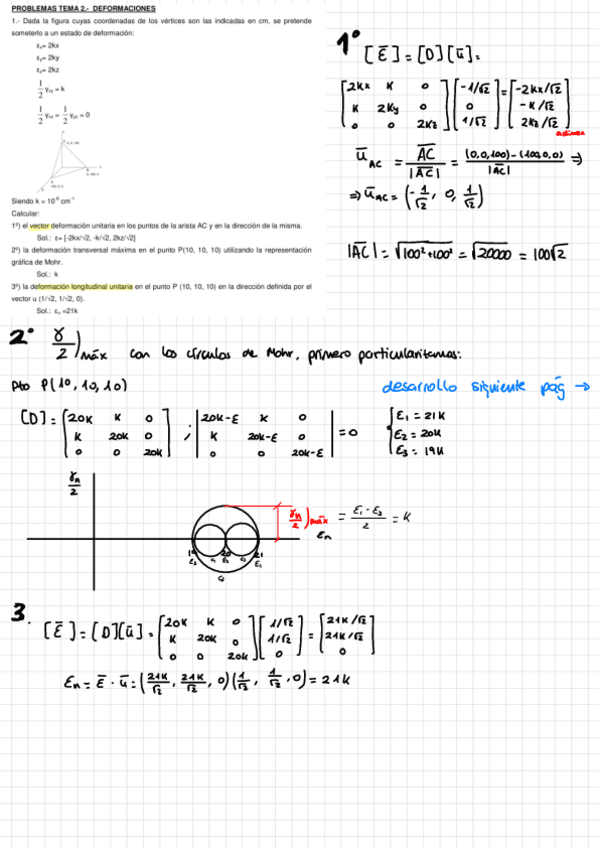 PROBLEMAS TEMA 2.- DEFORMACIONES
1.- Dada la figura cuyas coordenadas de los vértices son las indicadas en cm, se pretende
someterlo a un estado de deformación:
εx= 2kx
εy= 2ky
εz= 2kz
1/2 γxy = k
1/2 γxz = 1/2 γyz = 0
Siendo k = 10⁻⁶ cm⁻¹
Calcular:
1º) el vector deformación unitaria en los puntos de la arista AC y en la dirección de la misma.
Sol.: ε= [-2kx/√2, -k/√2, 2kz/√2]
2º) la deformación transversal máxima en el punto P(10, 10, 10) utilizando la representación
gráfica de Mohr.
Sol.: k
3º) la deformación longitudinal unitaria en el punto P (10, 10, 10) en la dirección definida por el
vector u (1/√2, 1/√2, 0).
Sol.: εn =21k
1º [Ē] = [D][ū] =
[2Kx K 0; K 2Ky 0; 0 0 2Kz] [-1/√2; 0; 1/√2] = [-2Kx/√2; -K/√2; 2Kz/√2]
ū AC = AC / |AC| = (0,0,100)-(100,0,0) / |AC| ⇒
⇒ ū AC = (-1/√2, 0, 1/√2)
|AC| = √100²+100² = √20000 = 100√2
2º γ/2) máx con los círculos de Mohr, primero particularizamos:
Pto P(10, 10, 10)
desarrollo siguiente pág →
[D] = [20K K 0; K 20K 0; 0 0 20K] ; |20K-ε K 0; K 20K-ε 0; 0 0 20K-ε| = 0
ε1 = 21K
ε2 = 20K
ε3 = 19K
γn/2
γn/2) máx = ε1 - ε3 / 2 = K
εn
19 20 21
ε3 C1 ε2 C3 ε1
C2
3. [Ē] = [D][ū] = [20K K 0; K 20K 0; 0 0 20K] [1/√2; 1/√2; 0] = [21K/√2; 21K/√2; 0]
εn = Ē · ū = (21K/√2, 21K/√2, 0)(1/√2, 1/√2, 0) = 21K